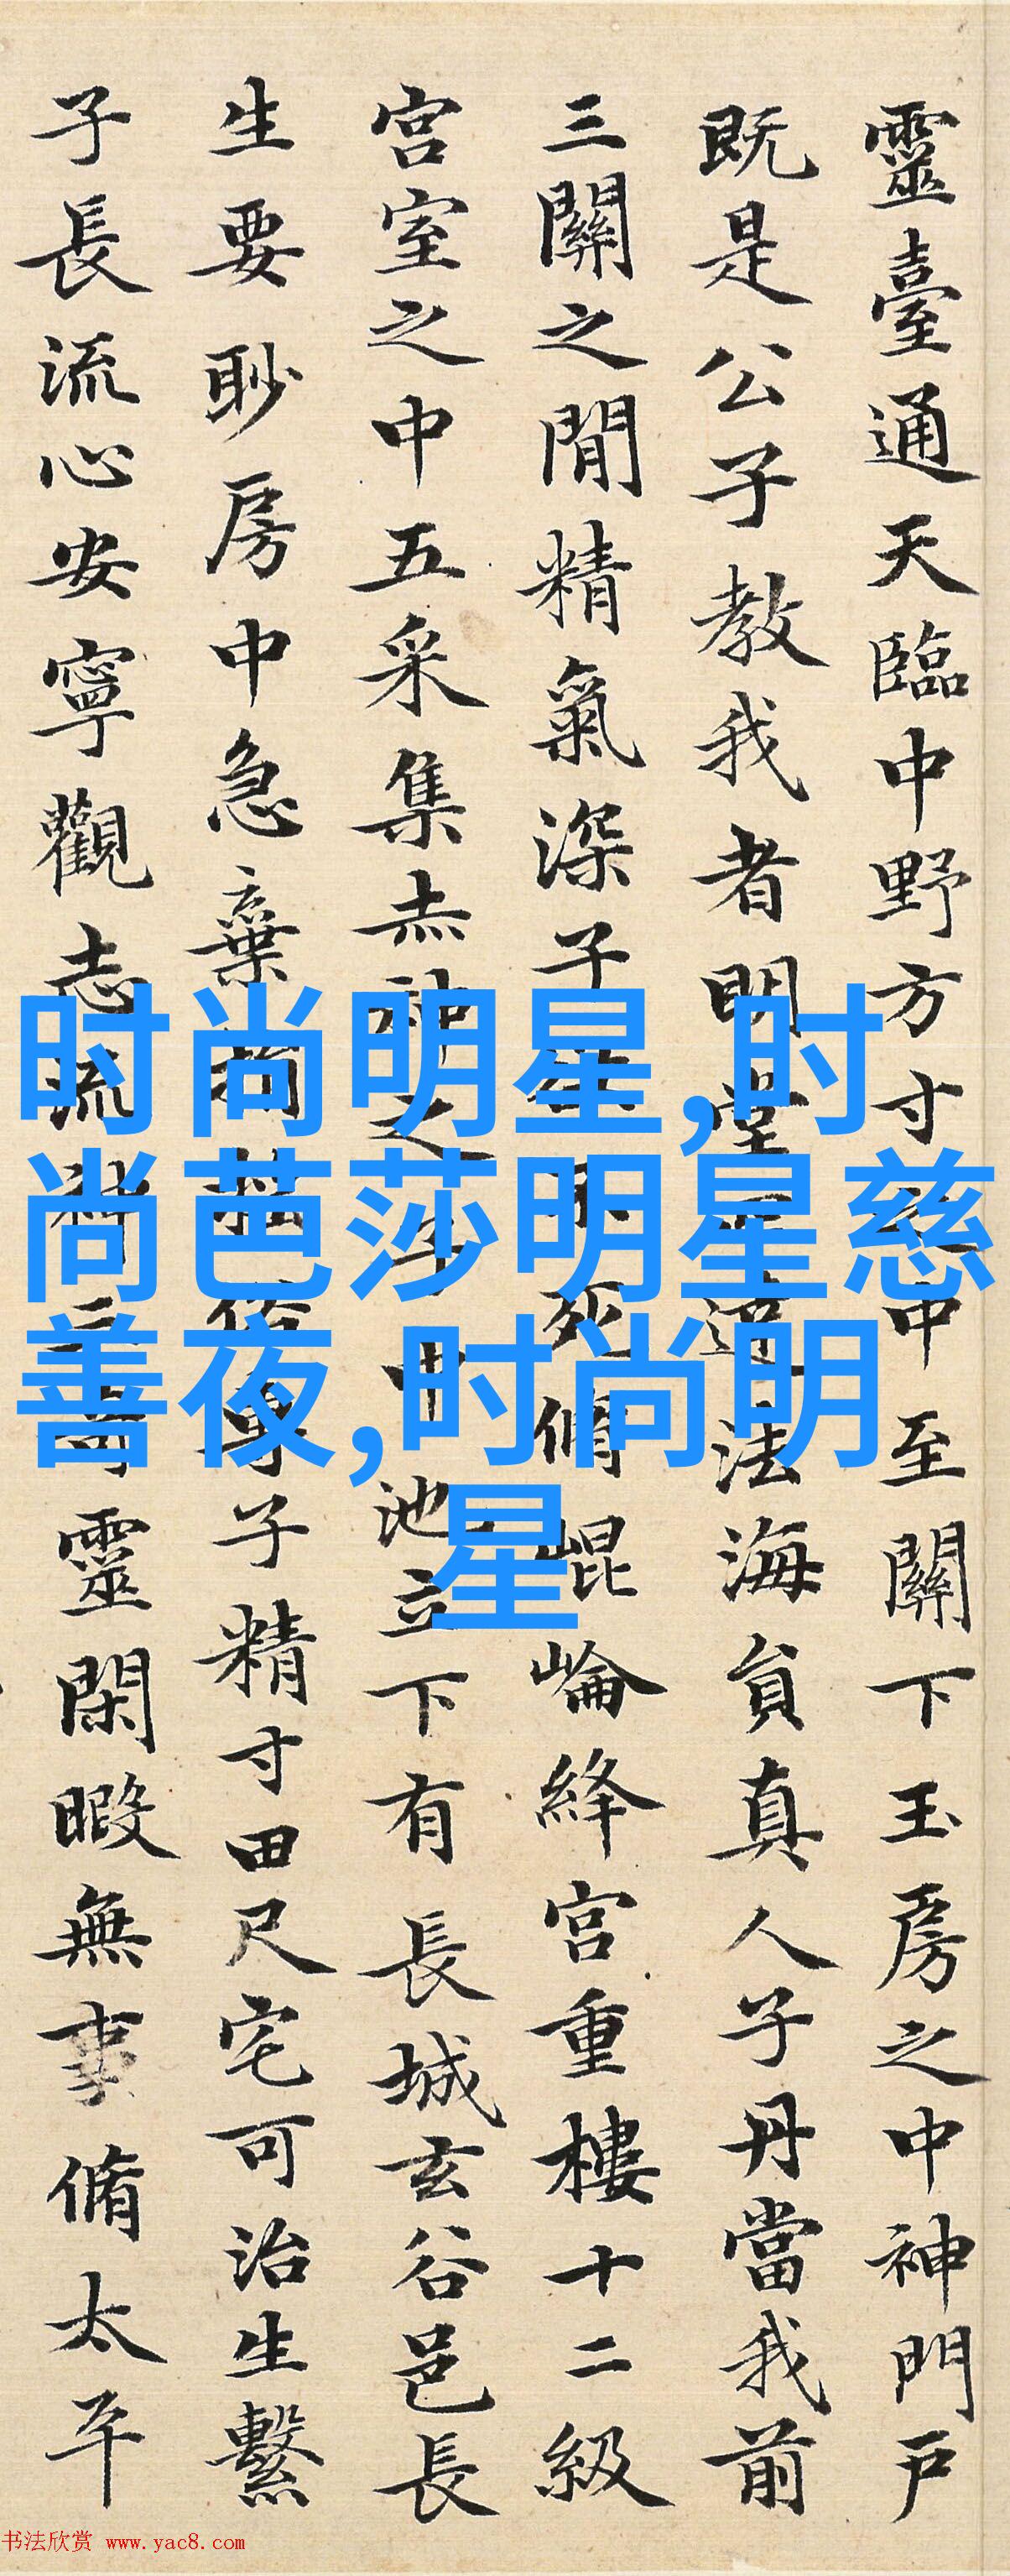 靈臺通天臨中野方寸中至關下玉房之中神門戶
既是公子教我者明堂達法海員真人子丹當我前
三關之間精氣深子不死脩崐崘絳宮重樓十二級
宮室之中五采集赤神之子中池立下有長城玄谷邑長
生要眇房中急棄捐俗專子精寸田尺宅可治生繫
子長流心安寧觀志流神三奇靈閑暇無事脩太平
时尚明星,时
尚芭莎明星慈
善夜,时尚明
星
书法欣赏 www.yac8.com